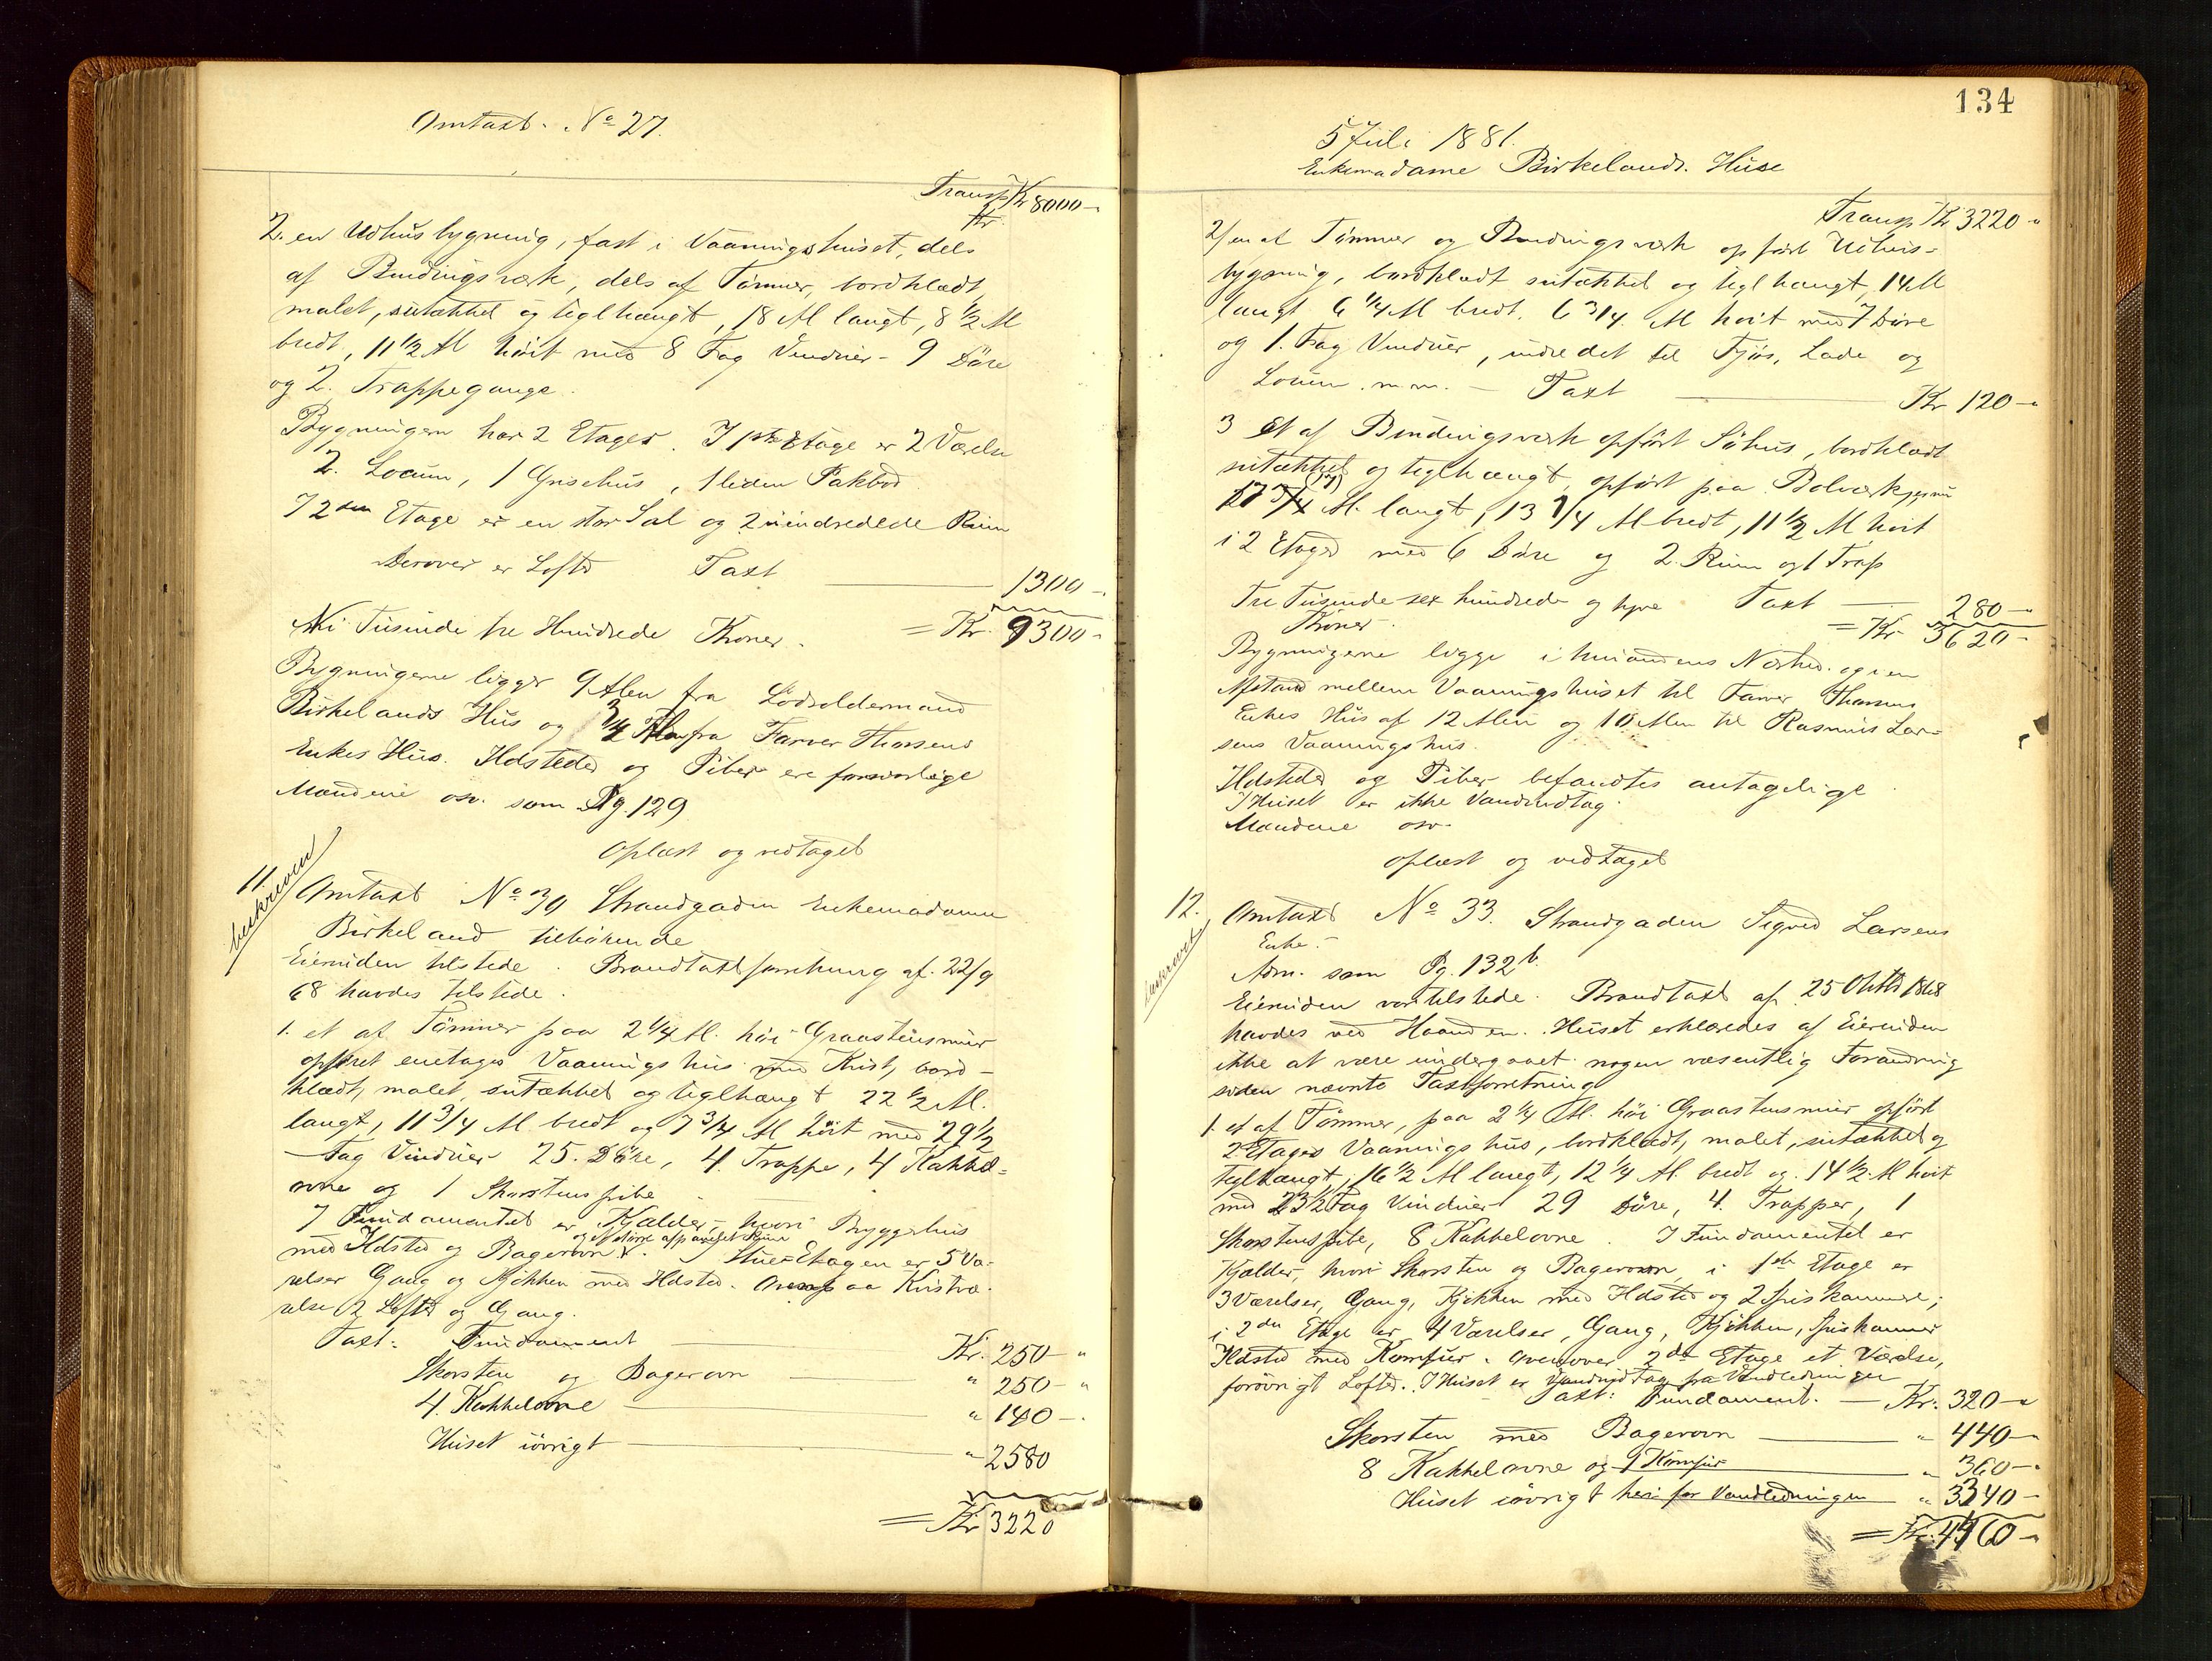 Omtaxt. No 27.
Transp Kr 8000-
Kr.
2. en Udhusbygning, fast i Vaaningshuset, dels
af Bindingsværk, dels af Tømmer, bordklædt,
malet, sutækket og teglhængt, 18 Al langt, 8 1/2 Al
bredt, 11 1/2 Al høit med 8 Fag Vinduer - 9 Døre
og 2. Trappegange.
Bygningen har 2 Etager. I 1ste Etage er 2 Værelser
2. Locum, 1 Grisehus, 1 liden Pakbod.
I 2den Etage er en stor Sal og 2 uindredede Rum
Derover er Lofte Taxt 1300-
Ni Tusinde tre Hundrede Kroner. = Kr. 9300-
Bygningerne ligger 9 Alen fra Lodsoldermand
Birkelands Hus og 3/4 Alen fra Farver Thorsens
Enkes Hus. Ildsteder og Piber ere forsvarlige
Mændene osv. som Pg. 129
Oplæst og vedtaget
11.
beskreven
Omtaxt No 30 Strandgaden Enkemadame
Birkeland tilhørende
Eierinden tilstede. Brandtaxtforretning af 22/9
68 havdes tilstede.
1. et af Tømmer paa 2 1/4 Al. høi Graastensmur
opført enetages Vaaningshus med Kvist, bord-
klædt, malet, sutækket og teglhængt 22 1/2 Al.
langt, 11 3/4 Al bredt og 7 3/4 Al høit med 29 1/2
Fag Vinduer 25. Døre, 4. Trappe, 4 Kakkel-
ovne og 1 Skorstenspibe
I Fundamentet er Kjælder, hvori Bryggerhus
og et større afpanelet Rum
med Ildsted og Bagerovn. I Stue-Etagen er 5 Væ-
relser Gang og Kjøkken med Ildsted. Ovenpaa Kvistvæ-
relse 2 Lofte og Gang.
Taxt: Fundament Kr. 250-"
Skorsten og Bagerovn " 250-"
4. Kakkelovne " 140-
Huset iøvrigt " 2580
= Kr 3220
134
5 Juli 1881.
Enkemadame Birkelands. Huse
Transp Kr 3220-"
2/ en af Tømmer og Bindingsværk opført Udhus-
bygning, bordklædt sutækket og teglhængt, 14 Al
langt 6 1/4 Al bredt. 6 3/4. Al høit med 7 Døre
og 1. Fag Vinduer, indredet til Fjøs, Lade og
Locum. m.m. - Taxt Kr 120-"
3 et af Bindingsværk opført Søhus, bordklædt
sutækket og teglhængt, opført paa Bolværk,
(17)
17 3/4 Al. langt, 13 1/4 Al bredt, 11 1/2 Al høit
i 2 Etager med 6 Døre og 2. Rum og 1 Trap
Tre Tusinde sex hundrede og tyve Taxt 280-"
Kroner. = Kr 3620-
Bygningerne ligge i hinandens Nærhed og i en
Afstand mellem Vaaningshuset til Farver Thorsens
Enkes Hus af 12 Alen og 10 Alen til Rasmus Lar-
sens Vaaningshus.
Ildsteder og Piber befandtes antagelige.
I Huset er ikke Vandindtag.
Mændene osv.
Oplæst og vedtaget
12.
beskrevet
Omtaxt No 33. Strandgaden Sigved Larsens
Enke.-
Adm. som Pg. 132b.
Eierinden var tilstede. Brandtaxt af 25 Oktb 1868
havdes ved Haanden. Huset erklæredes af Eierinden
ikke at være undergaaet nogen væsentlig Forandring
siden nævnte Taxtforretning
1. et af Tømmer, paa 2 1/4 Al. høi Graastensmur opført
2 Etages Vaaningshus, bordklædt, malet, sutækket og
teglhængt, 16 1/2 Al langt, 12 1/4 Al. bredt og 14 1/2 Al høit
med 23 1/2 Fag Vinduer 29 Døre, 4. Trapper, 1
Skorstenspibe, 8 Kakkelovne. I Fundamentet er
Kjælder, hvori Skorsten og Bagerovn, i 1ste Etage er
3 Værelser, Gang, Kjøkken med Ildsted og 2 Spiskammere;
i 2den Etage er 4 Værelser, Gang, Kjøkken, Spiskammer
Ildsted med Komfur. Ovenover 2den Etage et Værelse,
forøvrigt Lofte. I Huset er Vandindtag fra Vandledningen
Taxt: Fundament. - Kr. 320-"
Skorsten med Bagerovn " 440-"
8 Kakkelovne og 1 Komfur " 360-"
Huset iøvrigt heri for Vandledningen " 3340-
= Kr. 4460-"